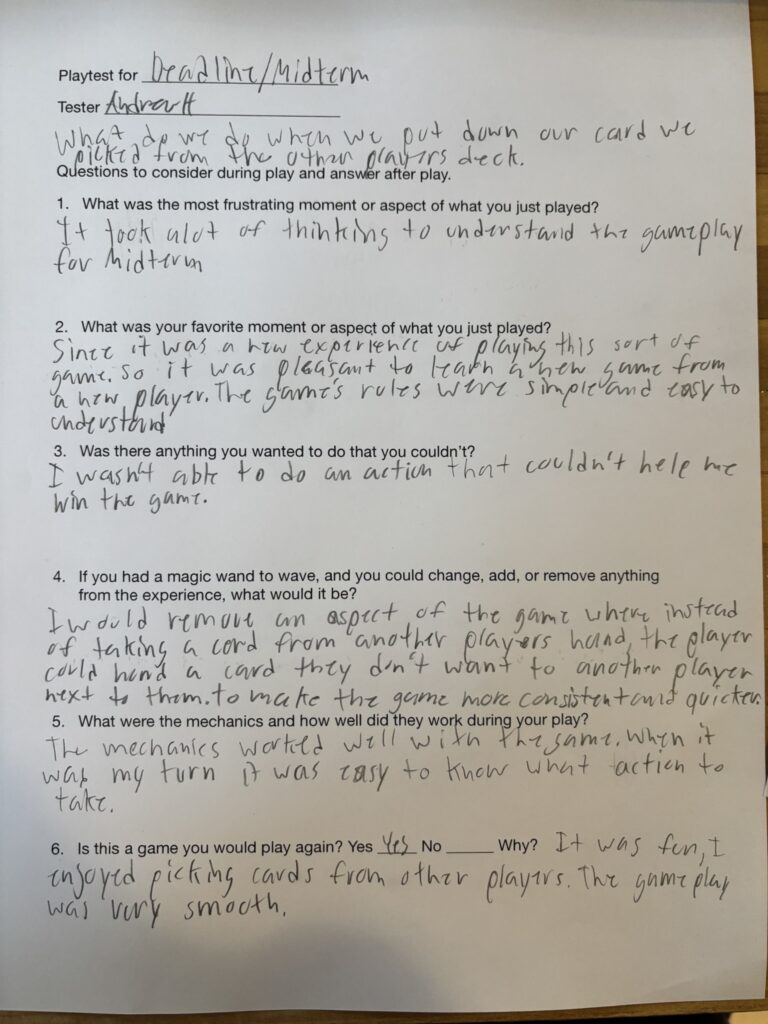 Playtest for Deadline/Midterm
Tester Andrew H
What do we do when we put down our card we
picked from the other players deck.
Questions to consider during play and answer after play.
1. What was the most frustrating moment or aspect of what you just played?
It took alot of thinking to understand the gameplay
for Midterm
2. What was your favorite moment or aspect of what you just played?
Since it was a new experience of playing this sort of
game. So it was pleasant to learn a new game from
a new player. The game's rules were simple and easy to
understand
3. Was there anything you wanted to do that you couldn't?
I wasn't able to do an action that couldn't help me
win the game.
4. If you had a magic wand to wave, and you could change, add, or remove anything
from the experience, what would it be?
I would remove an aspect of the game where instead
of taking a card from another players hand, the player
could hand a card they don't want to another player
next to them. to make the game more consistent and quicker.
5. What were the mechanics and how well did they work during your play?
The mechanics worked well with the game. When it
was my turn it was easy to know what action to
take.
6. Is this a game you would play again? Yes Yes No ____ Why? It was fun, I
enjoyed picking cards from other players. The gameplay
was very smooth.